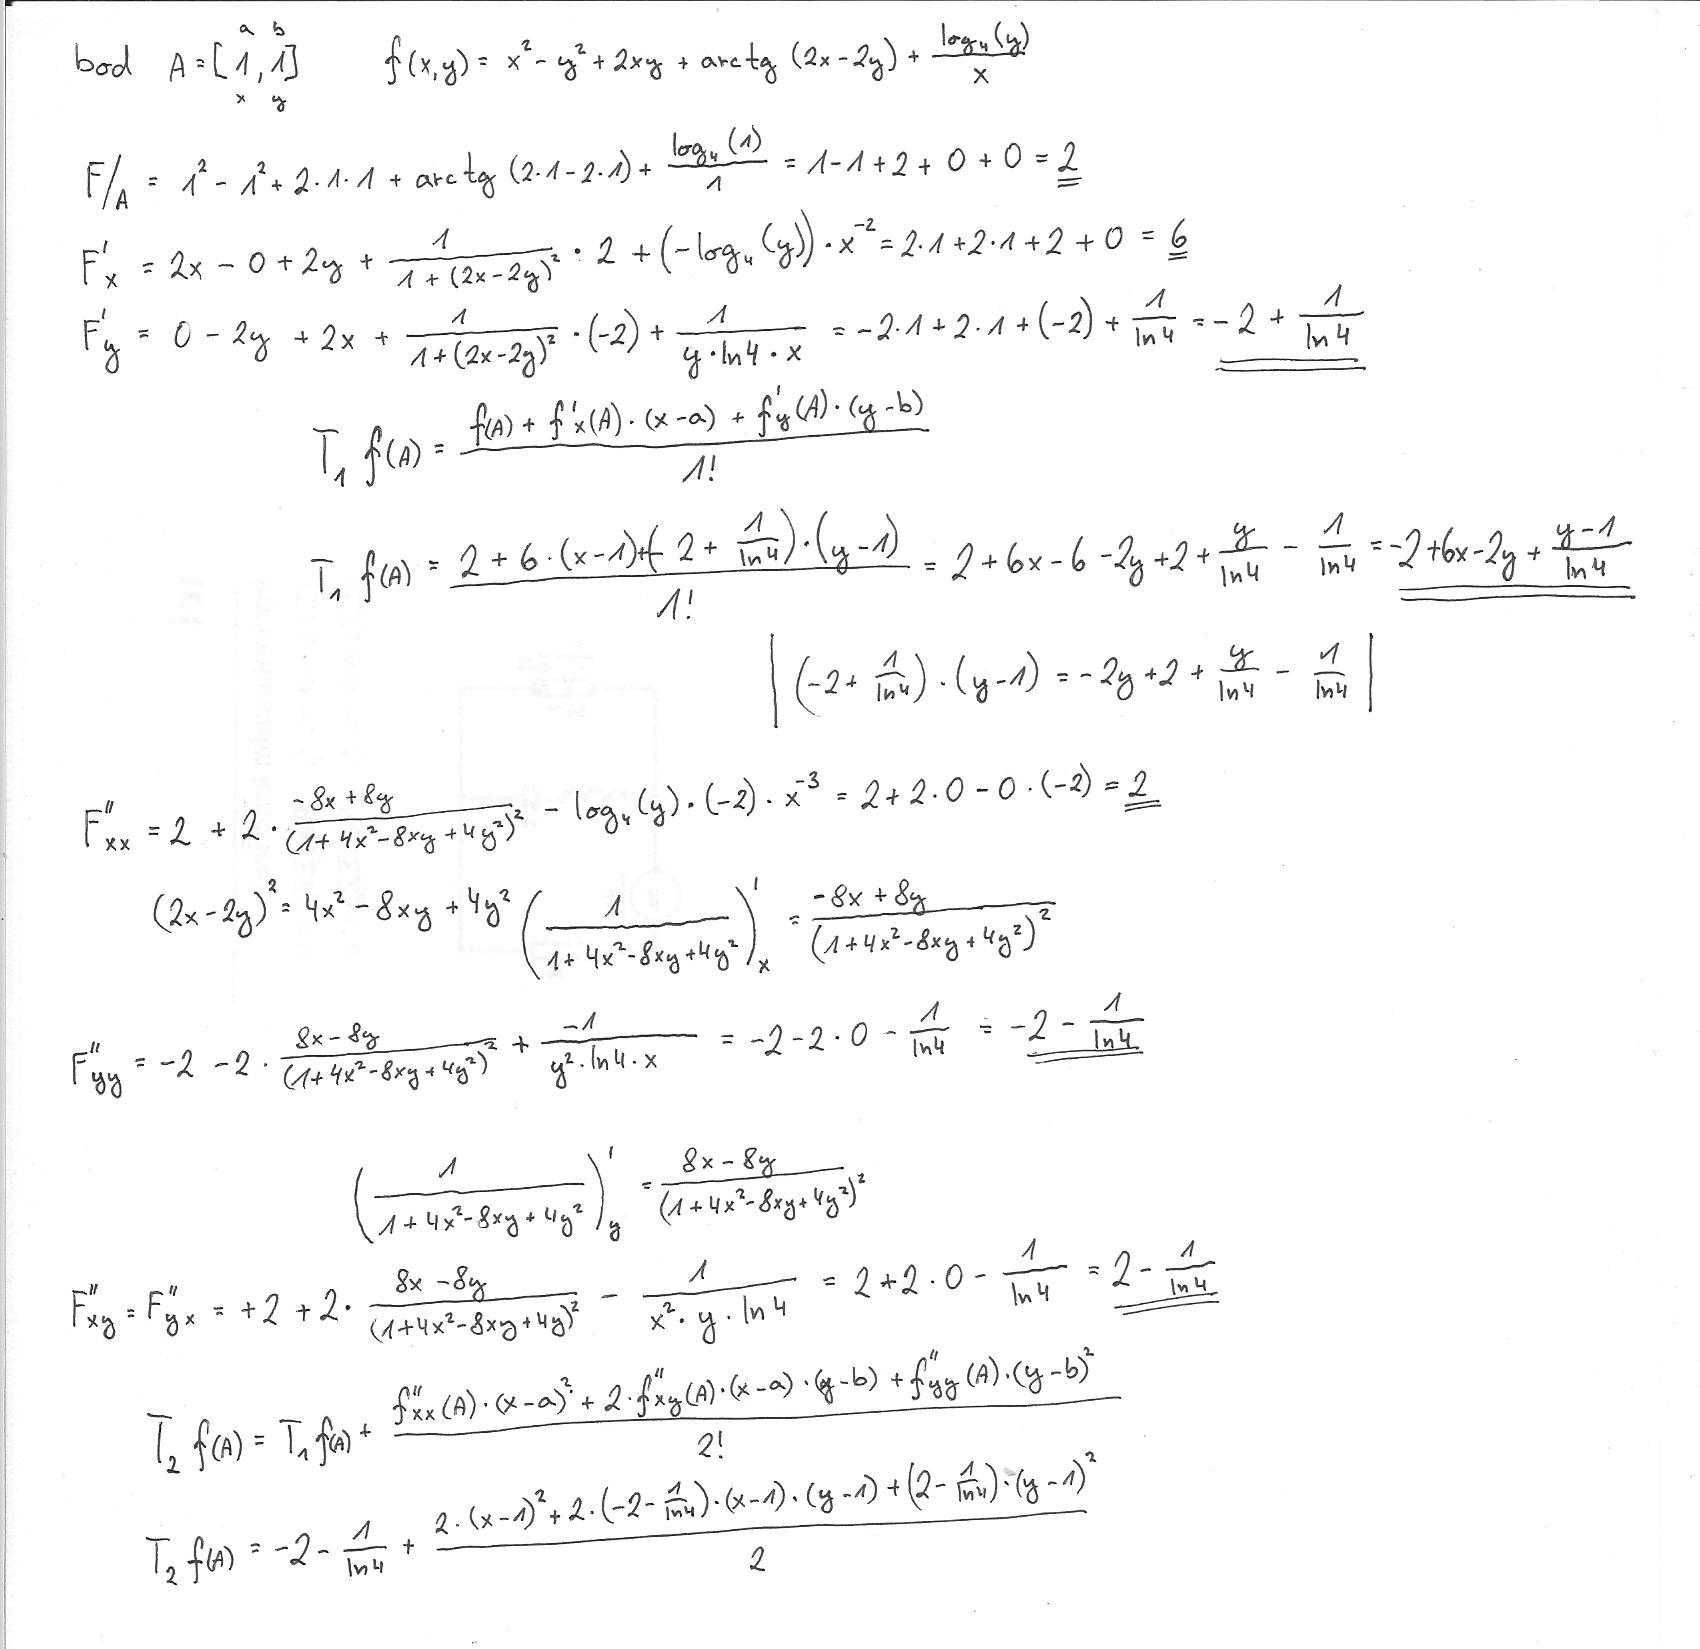 a b
bod A = [1, 1] f(x,y) = x² - y² + 2xy + arctg (2x-2y) + log₄(y)/x
x y
F/A = 1² - 1² + 2·1·1 + arctg (2·1-2·1) + log₄(1)/1 = 1-1+2+0+0 = 2
F'x = 2x - 0 + 2y + 1/(1+(2x-2y)²) · 2 + (-log₄(y)) · x⁻² = 2·1+2·1+2+0 = 6
F'y = 0 - 2y + 2x + 1/(1+(2x-2y)²) · (-2) + 1/(y·ln4·x) = -2·1+2·1+(-2) + 1/ln4 = -2 + 1/ln4
T₁ f(A) = (f(A) + f'x(A)·(x-a) + f'y(A)·(y-b))/1!
T₁ f(A) = (2 + 6·(x-1)+(-2 + 1/ln4)·(y-1))/1! = 2+6x-6-2y+2+ y/ln4 - 1/ln4 = -2+6x-2y + (y-1)/ln4
| (-2+ 1/ln4) · (y-1) = -2y+2 + y/ln4 - 1/ln4 |
F''xx = 2 + 2 · (-8x+8y)/(1+4x²-8xy+4y²)² - log₄(y)·(-2)·x⁻³ = 2+2·0-0·(-2) = 2
(2x-2y)² = 4x²-8xy+4y² (1/(1+4x²-8xy+4y²))'x = (-8x+8y)/(1+4x²-8xy+4y²)²
F''yy = -2 -2 · (8x-8y)/(1+4x²-8xy+4y²)² + -1/(y²·ln4·x) = -2-2·0 - 1/ln4 = -2 - 1/ln4
(1/(1+4x²-8xy+4y²))'y = (8x-8y)/(1+4x²-8xy+4y²)²
F''xy = F''yx = +2 +2· (8x-8y)/(1+4x²-8xy+4y)² - 1/(x²·y·ln4) = 2+2·0 - 1/ln4 = 2 - 1/ln4
T₂ f(A) = T₁ f(A) + (f''xx(A)·(x-a)² + 2·f''xy(A)·(x-a)·(y-b) + f''yy(A)·(y-b)²)/2!
T₂ f(A) = -2 - 1/ln4 + (2·(x-1)² + 2·(-2- 1/ln4)·(x-1)·(y-1) + (2- 1/ln4)·(y-1)²)/2